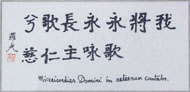 我將永永長歌兮
歌咏主仁慈
Misericordias Domini in aeternum cantabo.